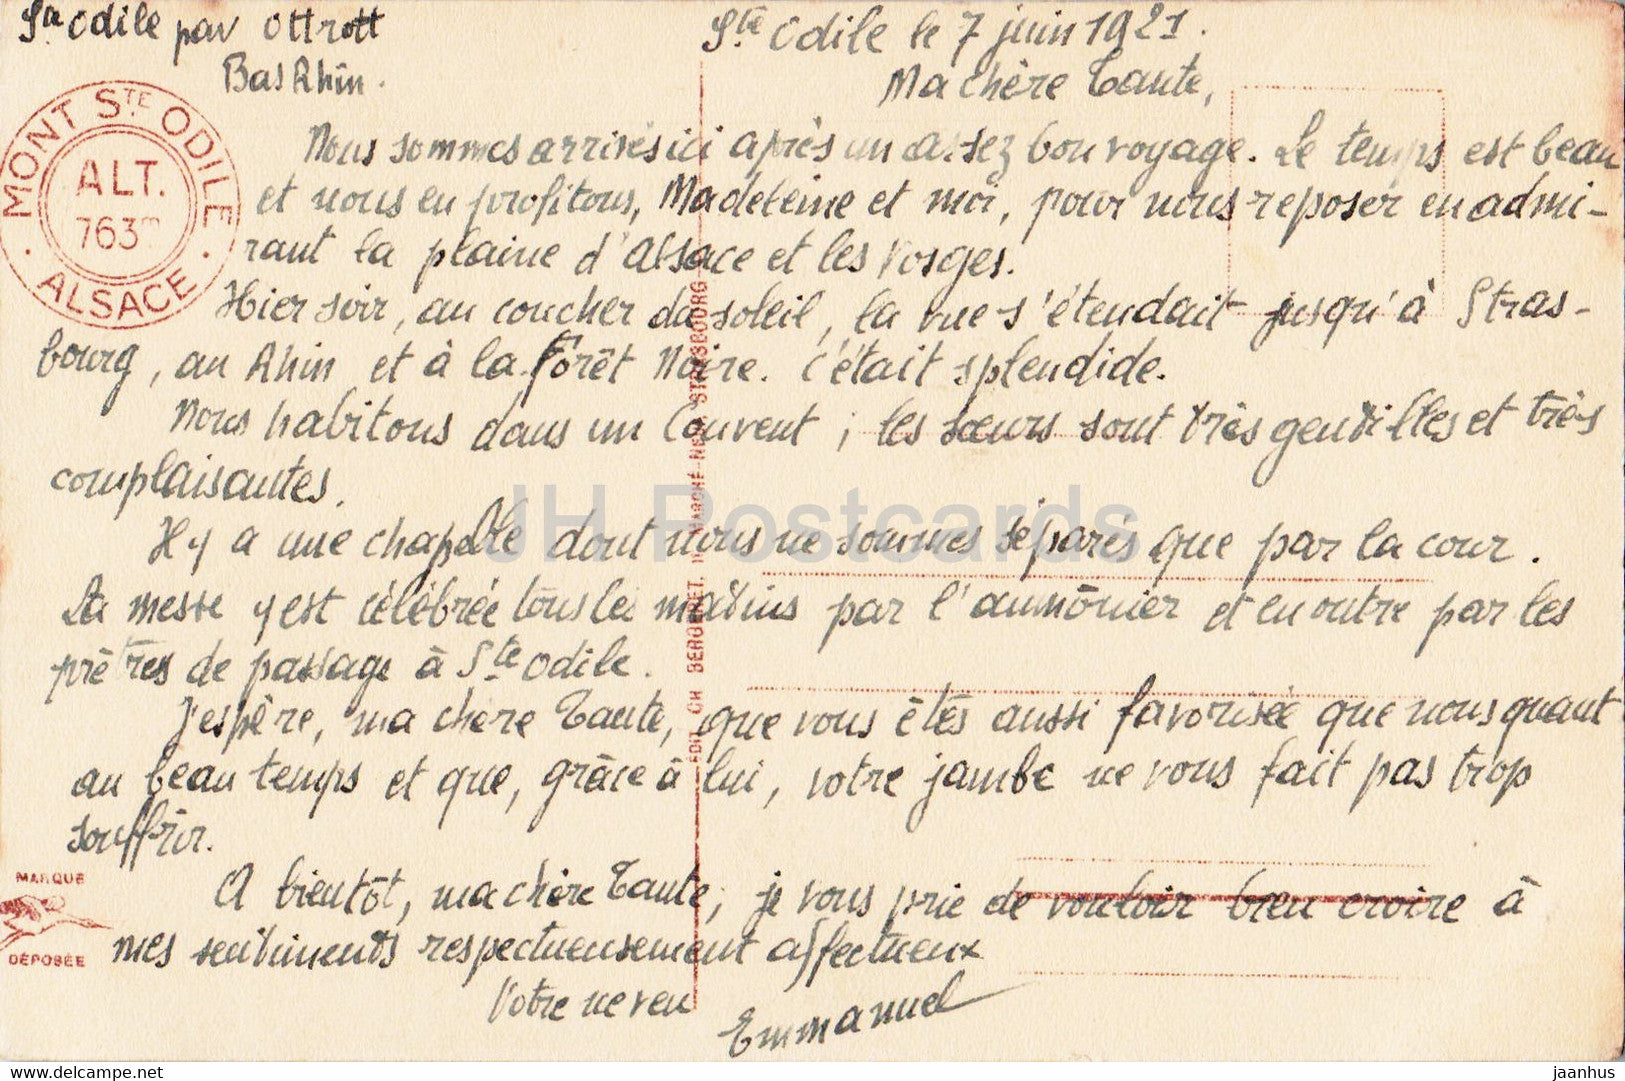 Ste Odile par Ottrott
Bas Rhin.
Ste Odile le 7 juin 1921.
Ma chère Tante,
MONT STE ODILE
ALT.
763m
ALSACE
Nous sommes arrivés ici après un assez bon voyage. Le temps est beau
et nous en profitons, Madeleine et moi, pour nous reposer en admi-
rant la plaine d'Alsace et les Vosges.
Hier soir, au coucher du soleil, la vue s'étendait jusqu'à Stras-
bourg, au Rhin et à la Forêt Noire. C'était splendide.
Nous habitons dans un Couvent ; les sœurs sont très gentilles et très
complaisantes.
Il y a une chapelle dont nous ne sommes séparés que par la cour.
La messe y est célébrée tous les matins par l'aumônier et en outre par les
prêtres de passage à Ste Odile.
J'espère, ma chère Tante, que vous êtes aussi favorisée que nous quant
au beau temps et que, grâce à lui, votre jambe ne vous fait pas trop
souffrir.
A bientôt, ma chère Tante, je vous prie de vouloir bien croire à
mes sentiments respectueusement affectueux
Votre neveu
Emmanuel
MARQUE
DÉPOSÉE
EDIT. CH. BERGERET,
MARCHÉ-NEUF, STRASBOURG
JH Postcards
delcampe.net
jaanhus